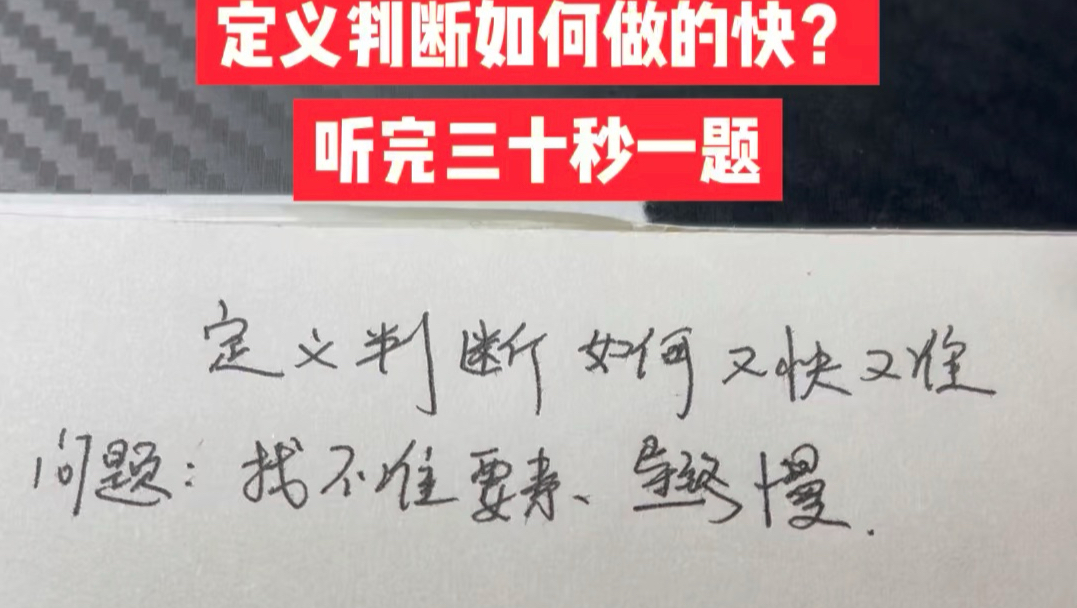 定义判断如何做的快？
听完三十秒一题
定义判断如何又快又准
问题：找不准要素、 慢.